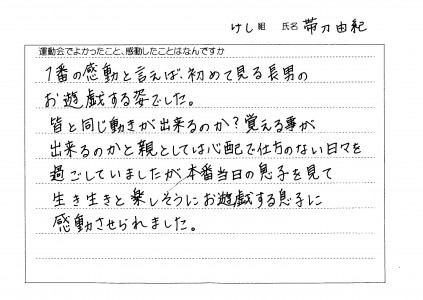 けし組 氏名 帯刀由紀
運動会でよかったこと、感動したことはなんですか
1番の感動と言えば、初めて見る長男の
お遊戯する姿でした。
皆と同じ動きが出来るのか？覚える事が
出来るのかと親としては心配で仕方のない日々を
過ごしていましたが、本番当日の息子を見て
生き生きと楽しそうにお遊戯する息子に
感動させられました。